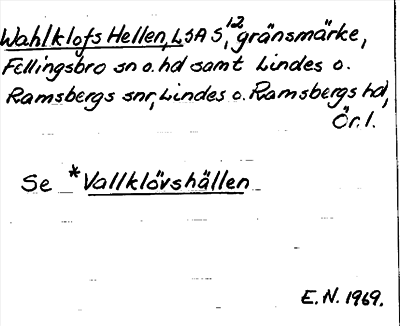 Wahlklofs Hellen, LSA S¹², gränsmärke,
Fellingsbro sn o. hd samt Lindes o.
Ramsbergs snr, Lindes o. Ramsbergs hd,
Ör. l.
Se *Vallklövshällen
E.N. 1969.